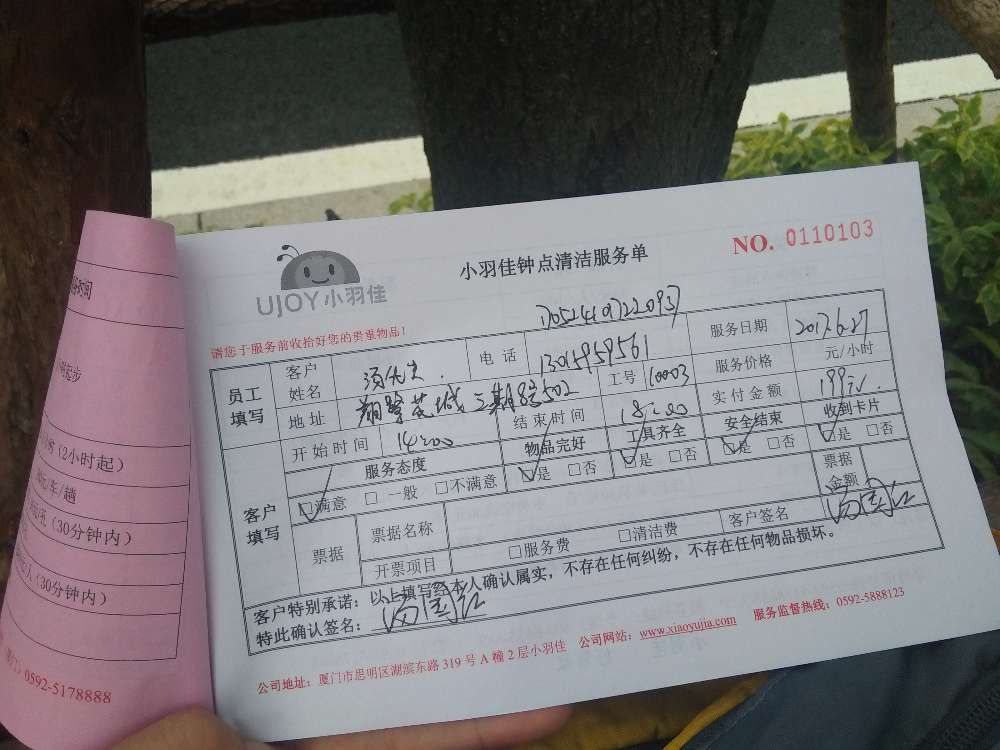 UJOY小羽佳
小羽佳钟点清洁服务单
NO. 0110103
请您于服务前收拾好您的贵重物品!
员工填写
客户姓名
电话 13015959561
服务日期 2017.6.27
地址
三期8号502
工号 10003
服务价格 元/小时
开始时间 14:00
结束时间 18:00
实付金额 199元
客户填写
服务态度 物品完好 工具齐全 安全结束 收到卡片
☑满意 □ 一般 □不满意 ☑是 □否 ☑是 □否 ☑是 □否 ☑是 □否
票据 票据名称 票据金额
开票项目 □服务费 □清洁费 客户签名
客户特别承诺:以上填写经本人确认属实,不存在任何纠纷,不存在任何物品损坏。
特此确认签名:
公司地址:厦门市思明区湖滨东路 319 号 A 幢 2 层小羽佳 公司网站:www.xiaoyujia.com 服务监督热线:0592-5888123
(2小时起)
元/车/趟
(30分钟内)
(30分钟内)
0592-5178888